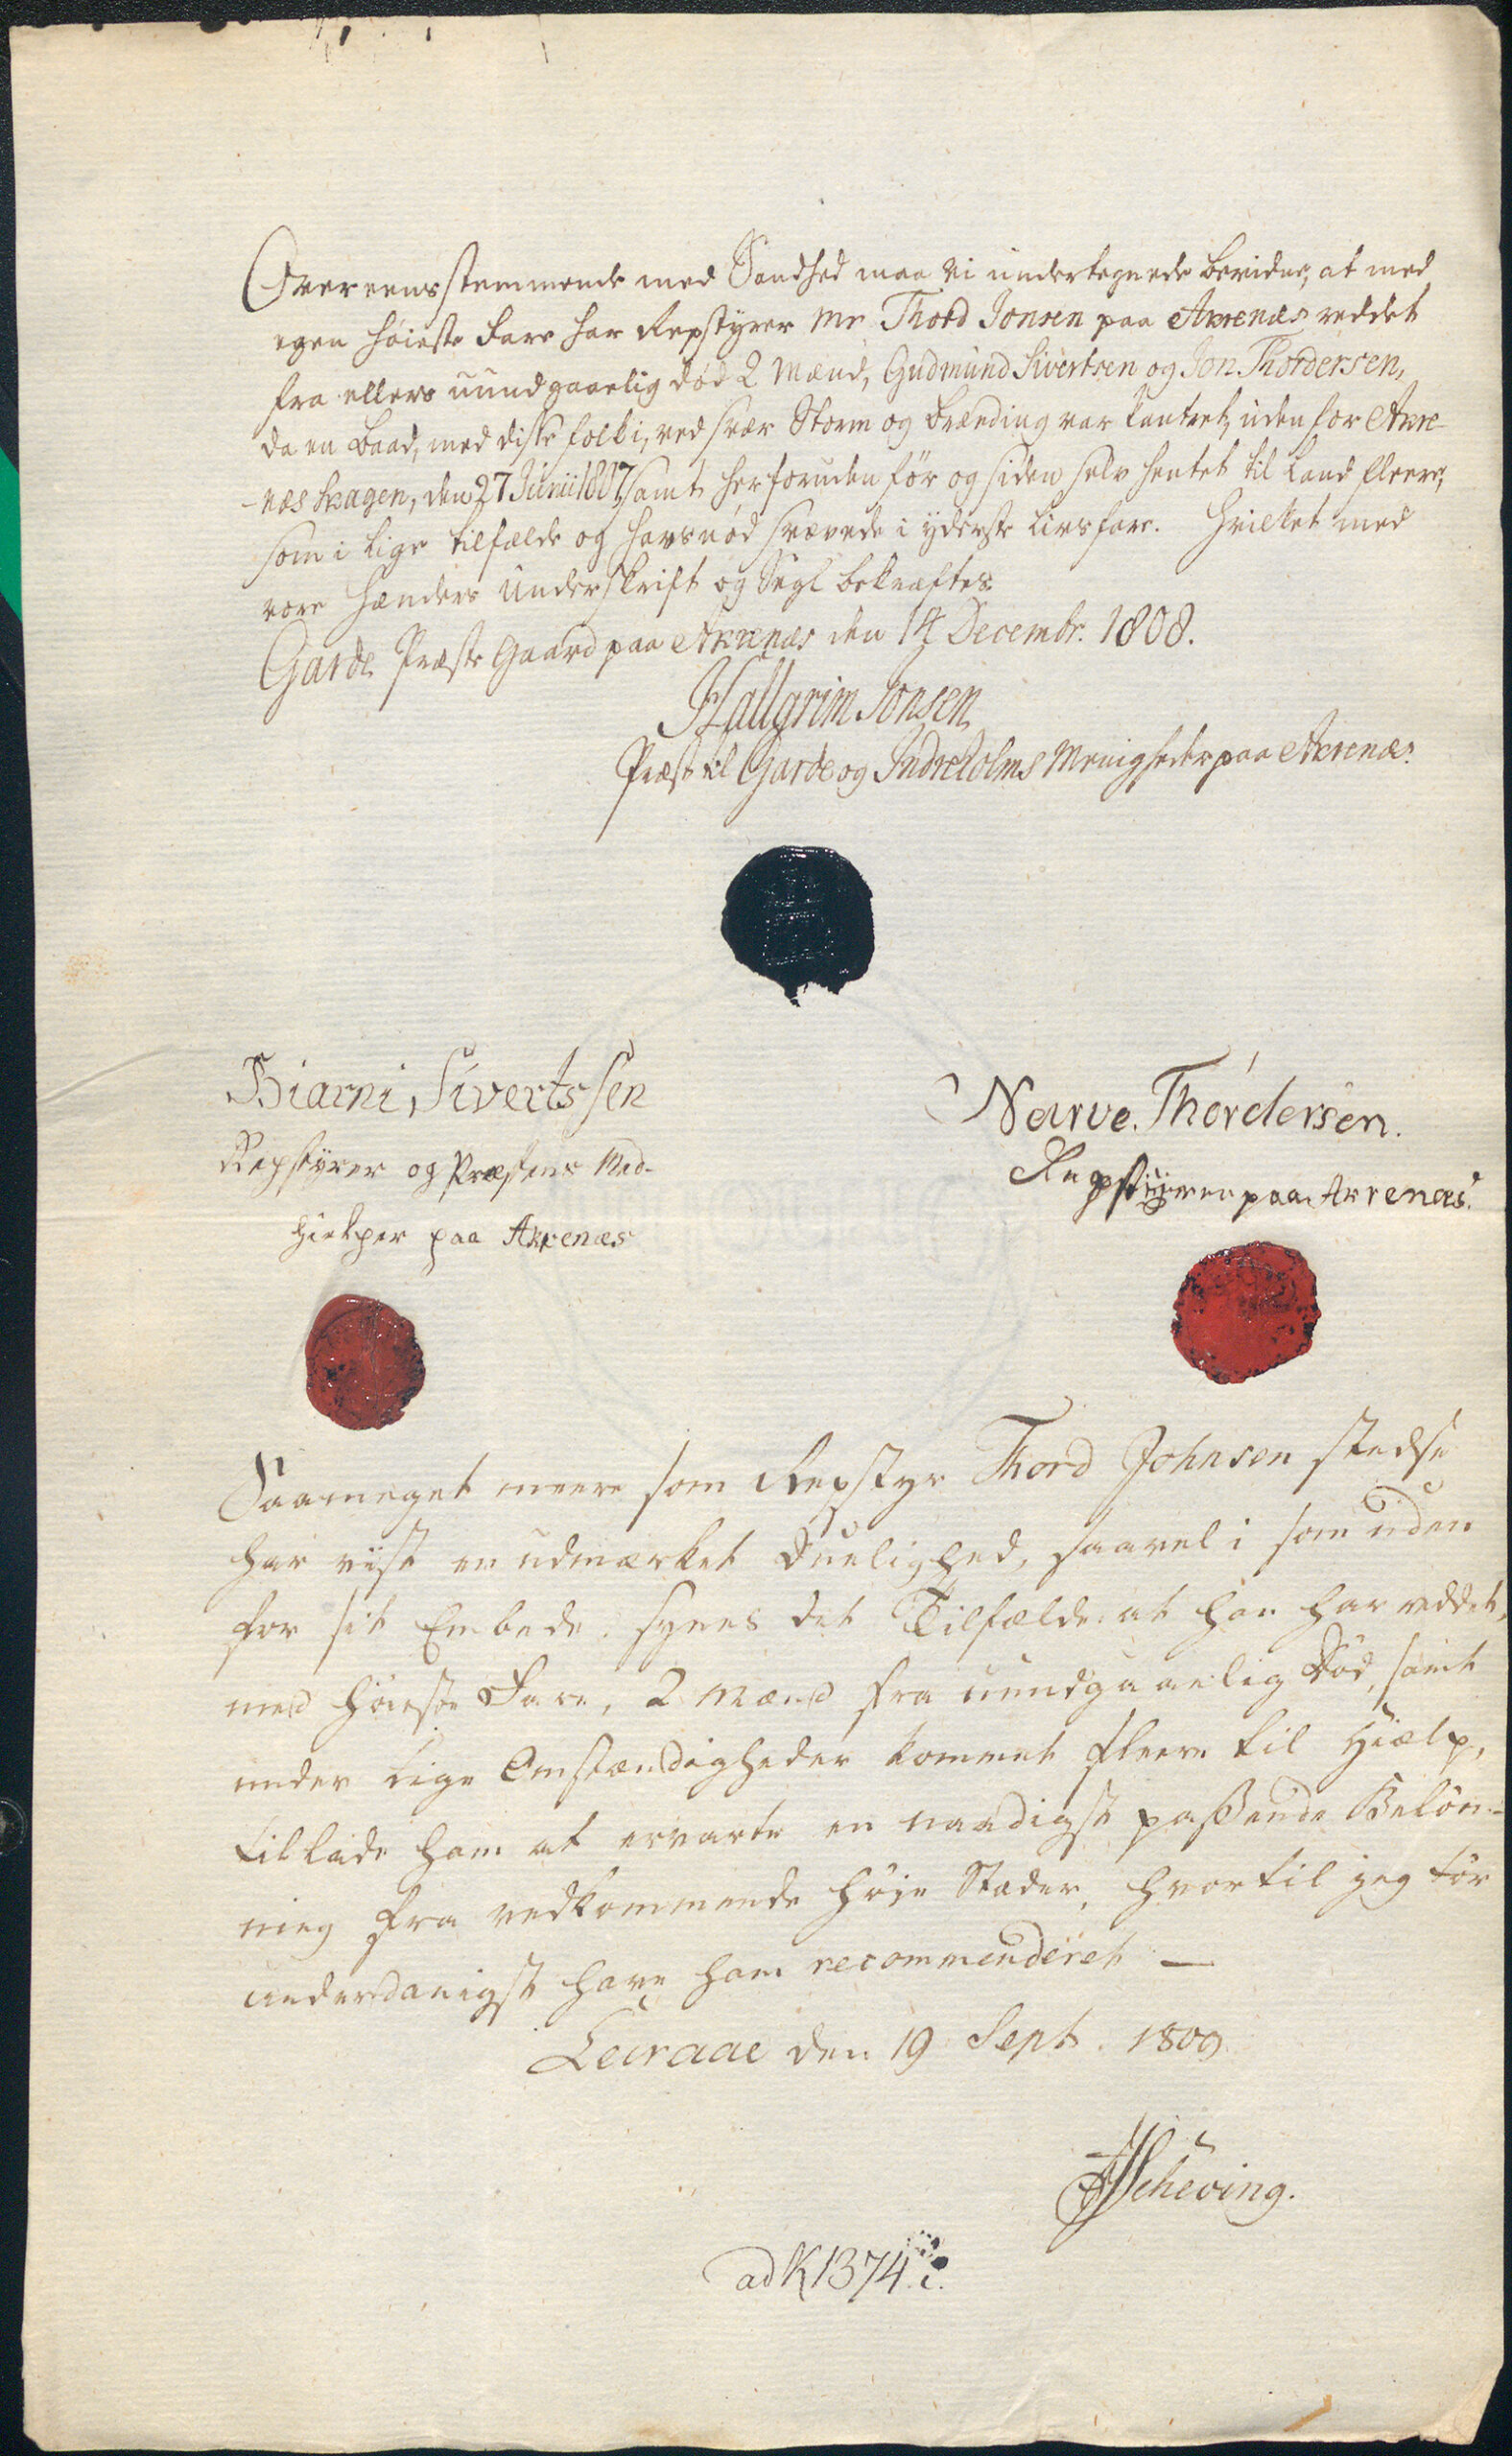 Overeensstemmende med Sandhed maa vi undertegnede bevidne, at med
egen høieste Fare har Repstyrer Mr. Thord Jonsen paa Akrenæs reddet
fra ellers uundgaaelig død 2 Mænd, Gudmund Sivertsen og Jon Thordersen,
da en Baad, med disse folk i, ved svær Storm og Brænding var kantret, uden for Akre-
-næs Skagen, den 27 Junii 1807, samt herforuden før og siden selv hentet til Land fleere,
som i lige tilfælde og havsnød svævede i yderste Livsfare. Hvilket med
vore Hænders Underskrift og Segl bekræftes.
Garde Præste Gaard paa Akrenæs den 14 Decembr. 1808.
Hallgrim Jonsen
Præst til Garde og Indreholms Menigheder paa Akrenæs.
Biarni Sivertssen
Repstyrer og Præstens Med-
hielper paa Akrenæs
Narve Thordersen.
Repstyrer paa Akrenæs.
Saameget meere som Repstyr Thord Johnsen stedse
har viist en udmærket Duelighed, saavel i som uden
for sit Embede, synes det Tilfælde at han har reddet,
med høieste Fare, 2 Mænd fra uundgaaelig Død, samt
under lige Omstændigheder kommet fleere til Hjælp,
tillade ham at ervarte en naadigst passende Beløn-
ning fra vedkommende høje Stæder, hvortil jeg tør
underdanigst have ham recommenderet —
Leeraae den 19 Sept. 1809
Scheving.
ad K 1374